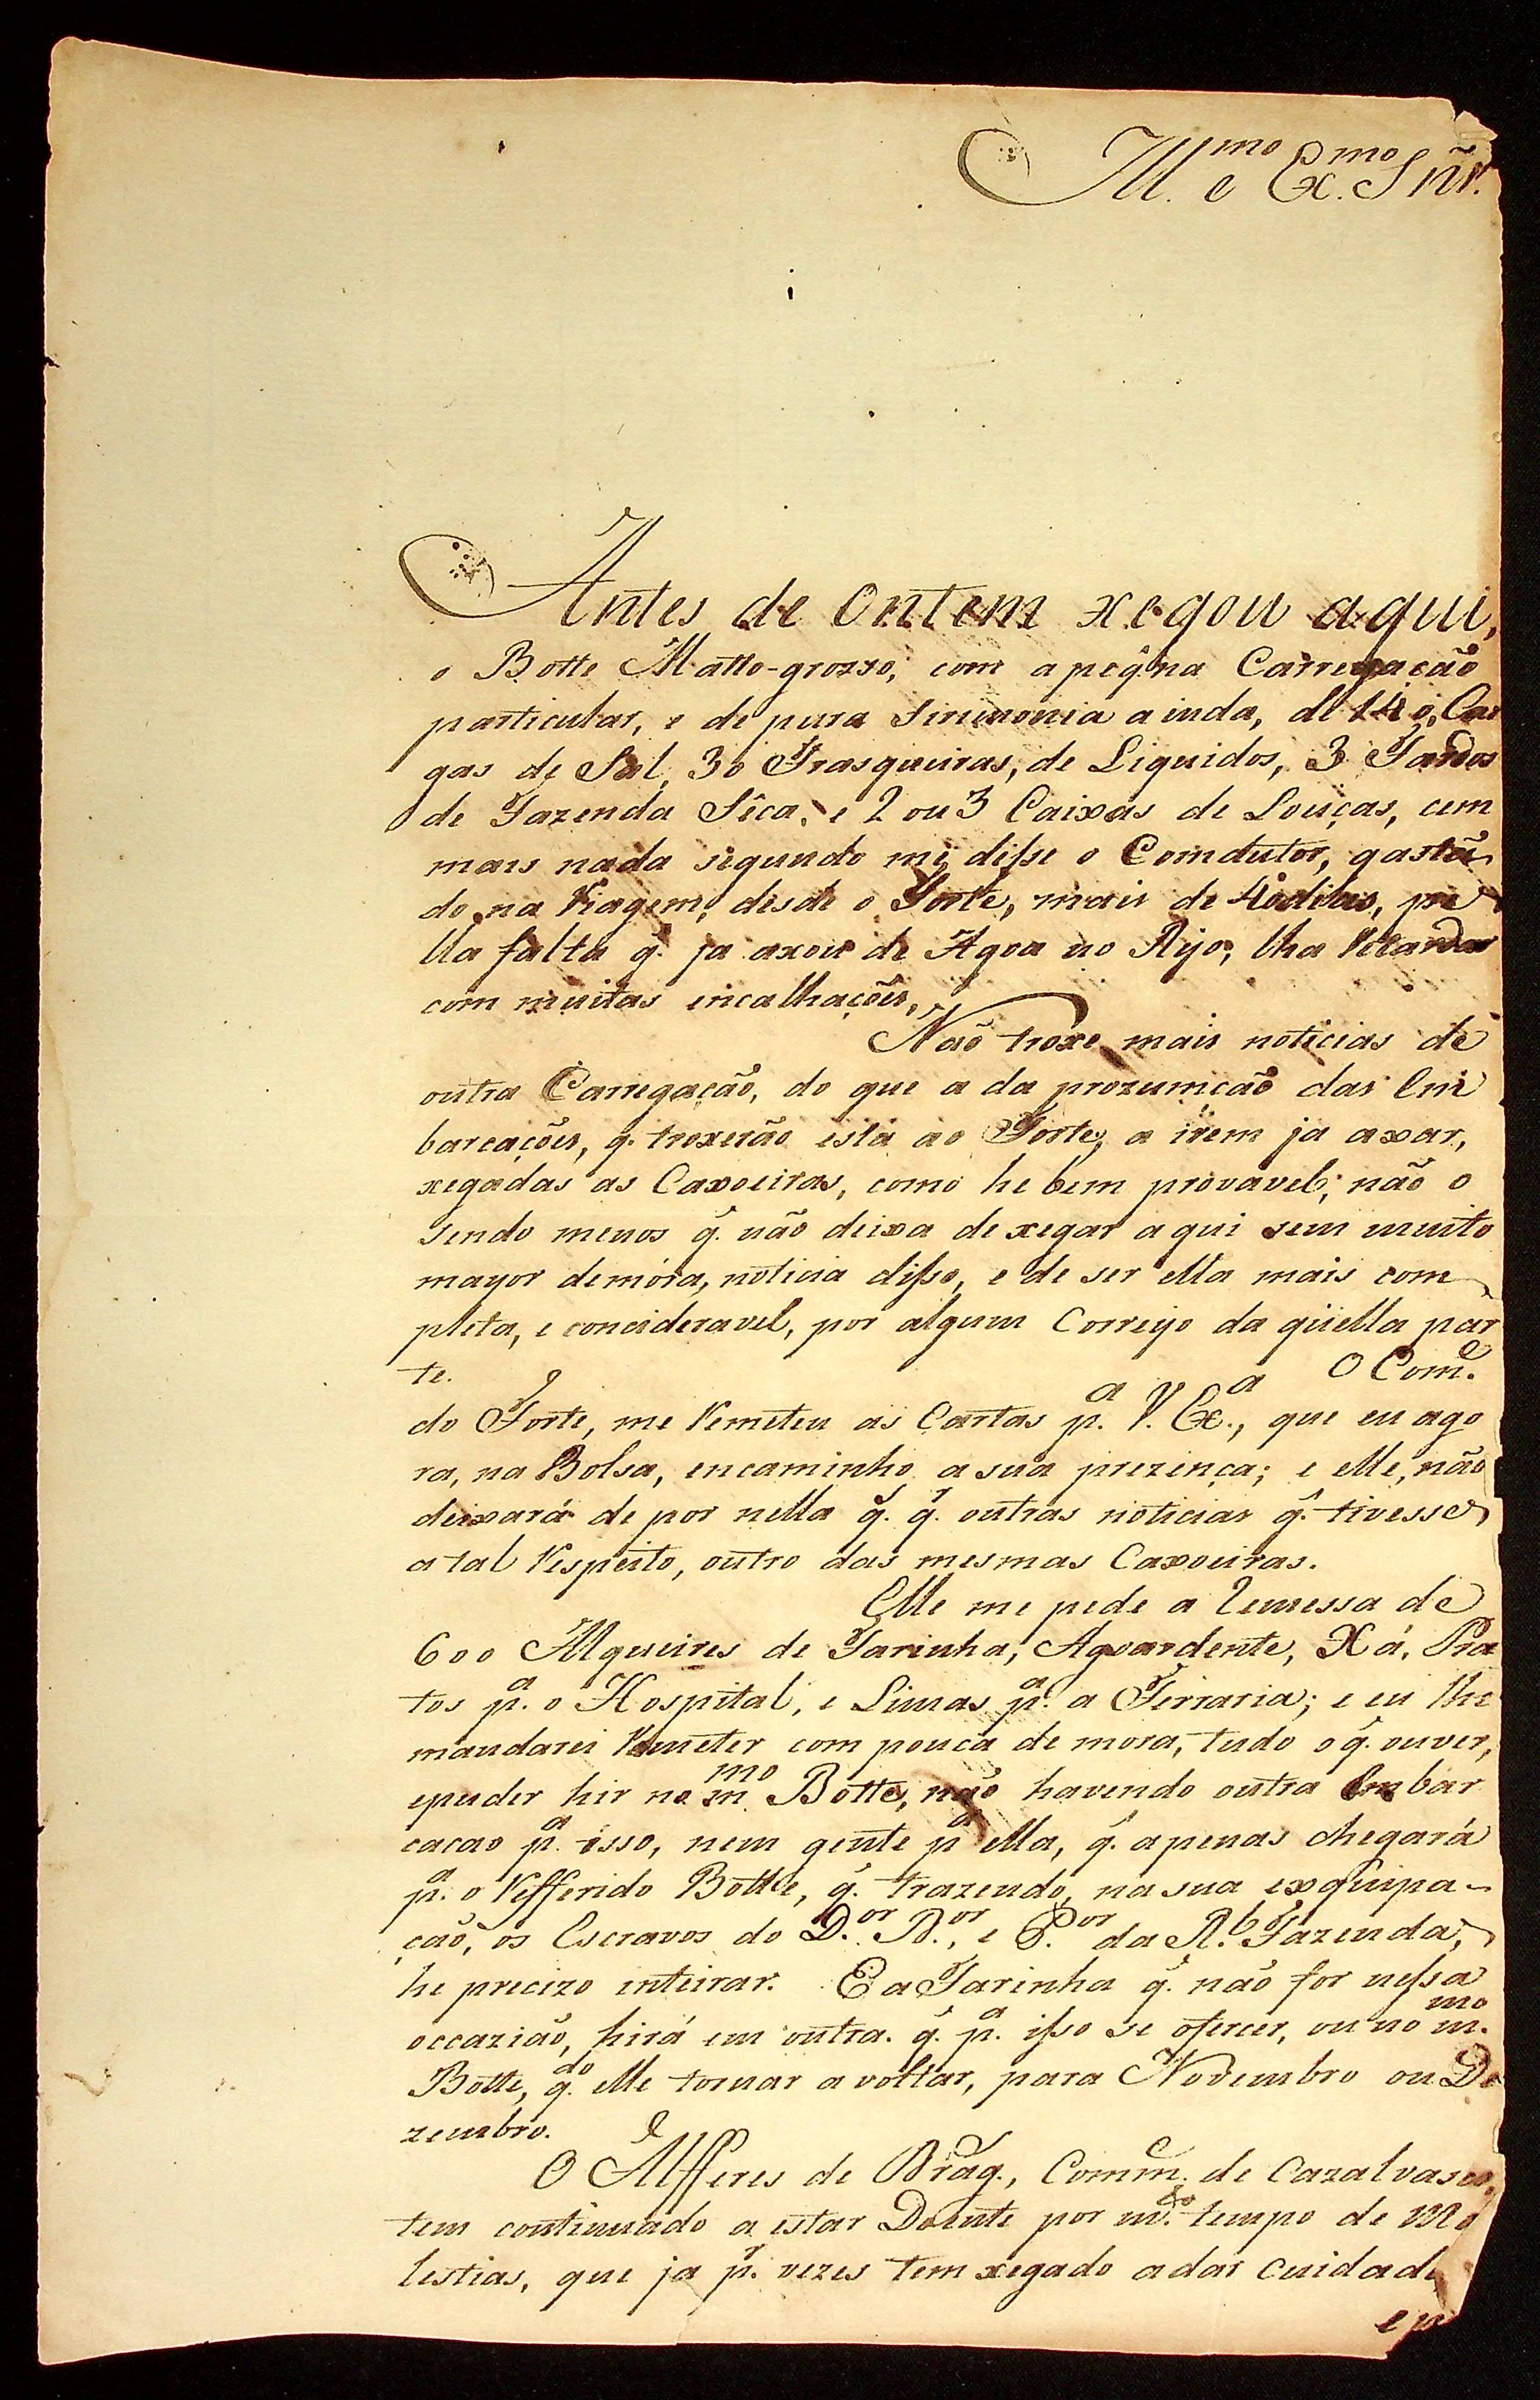 Ill.mo e Ex.mo Sñr.
Antes de Ontem xegou aqui,
o Botte Matto-grosso, com a peq̃na Carregação
particular, e de pura Sirimonia ainda, de 140, Car
gas de Sal, 30 Frasqueiras, de Liquidos, 3 Fardos
de Fazenda Sêca, e 2 ou 3 Caixas de Louças, cem
mais nada segundo me disse o Comdutor, gastãn
do na Viagem, desde o Forte, mais de 40 dias, pe
lla falta q̃. ja axou de Agoa no Rijo, lha Retardar
com muitas encalhações,
Não troxe mais noticias de
outra Carregação, do que a da prozumção das Em
barcações, q. troxerão esta ao Forte, a irem ja axar,
xegadas as Caxoeiras, como he bem provavel; não o
sendo menos q̃. não deixa de xegar aqui sem muito
mayor demóra, noticia disso, e de ser ella mais com
pleta, e concideravel, por algum Correyo da quella par
te. O Com.e
do Forte, me Remeteu as Cartas p.a V. Ex.a, que eu ago
ra, na Bolsa, encaminho a sua prezença; e elle, não
deixará de por nella q̃. q̃. outras noticias q̃. tivesse
a tal Respeito, outro das mesmas Caxoeiras.
Elle me pede a Remessa de
600 Alqueires de Farinha, Agoardente, Xá, Pra
tos p.a o Hospital, e Limas p.a a Ferraria; e eu lhe
mandarei Remeter com pouca demora, tudo o q̃. ouver,
e puder hir no m.mo Botte, não havendo outra Embar
cacao p.a isso, nem gente p.a ella, q̃. apenas chegará
p.a o Refferido Botte, q̃. trazendo, na sua exquipa-
ção, os Escravos do D.or R.or, e P.or da R.l Fazenda,
he precizo inteirar. E a Farinha q̃. não for nessa
occazião, hirá em outra. q̃. p.a isso se ofercer, ou no m.mo
Botte, q.do elle tornar a voltar, para Novembro ou De
zembro.
O Alfferes de Drag., Comm.e de Cazalvasco,
tem continuado a estar Doente por m.to tempo de Mo
lestias, que ja p.r vezes tem xegado a dar cuidado
e p